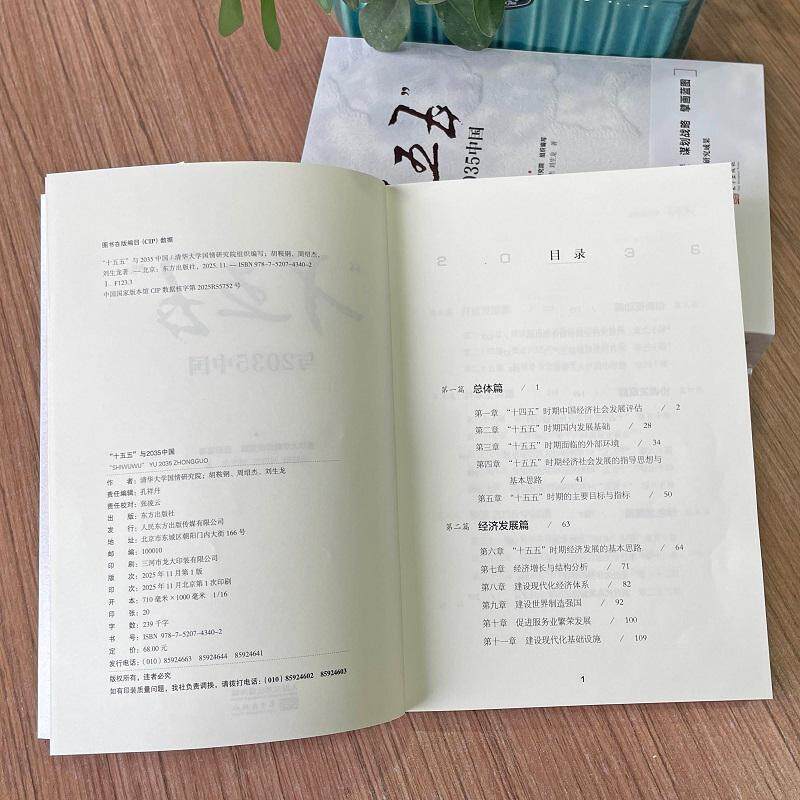 ”
五五
2035中国
谋划战略 擘画蓝图
研究成果
图书在版编目（CIP）数据
“十五五”与 2035 中国 / 清华大学国情研究院组织编写；胡鞍钢，周绍杰，
刘生龙著. — 北京：东方出版社，2025. 11. — ISBN 978-7-5207-4340-2
Ⅰ. F123.3
中国国家版本馆 CIP 数据核字第 2025RS5752 号
“十五五”与2035中国
“SHIWUWU” YU 2035 ZHONGGUO
作 者：清华大学国情研究院；胡鞍钢、周绍杰、刘生龙
责任编辑：孔祥丹
责任校对：张凌云
出 版：东方出版社
发 行：人民东方出版传媒有限公司
地 址：北京市东城区朝阳门内大街 166 号
邮 编：100010
印 刷：三河市龙大印装有限公司
版 次：2025 年 11 月第 1 版
印 次：2025 年 11 月北京第 1 次印刷
开 本：710 毫米 × 1000 毫米 1/16
印 张：20
字 数：239 千字
书 号：ISBN 978-7-5207-4340-2
定 价：68.00 元
发行电话：（010）85924663 85924644 85924641
版权所有，违者必究
如有印装质量问题，我社负责调换，请拨打电话：（010）85924602 85924603
2 0 3 5
目 录
第一篇 总体篇 / 1
第一章 “十四五”时期中国经济社会发展评估 / 2
第二章 “十五五”时期国内发展基础 / 28
第三章 “十五五”时期面临的外部环境 / 34
第四章 “十五五”时期经济社会发展的指导思想与
基本思路 / 41
第五章 “十五五”时期的主要目标与指标 / 50
第二篇 经济发展篇 / 63
第六章 “十五五”时期经济发展的基本思路 / 64
第七章 经济增长与结构分析 / 71
第八章 建设现代化经济体系 / 82
第九章 建设世界制造强国 / 92
第十章 促进服务业繁荣发展 / 100
第十一章 建设现代化基础设施 / 109
1